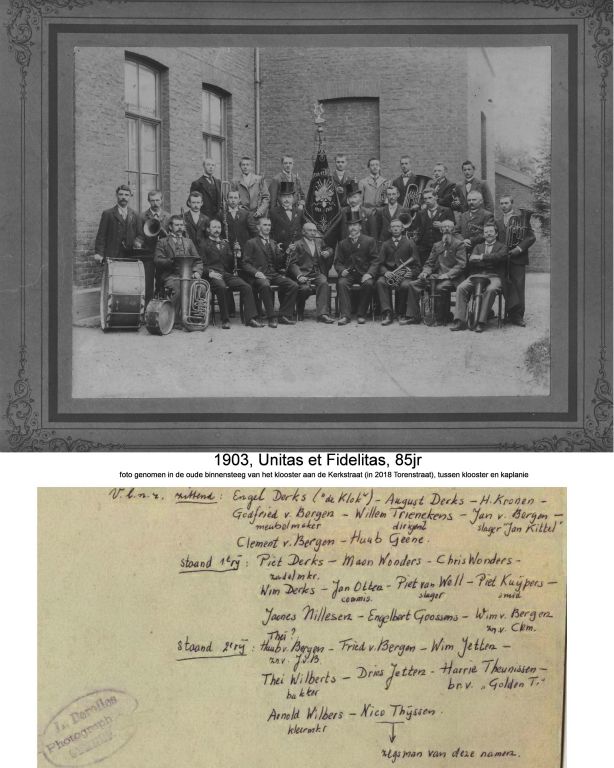 1903, Unitas et Fidelitas, 85jr
foto genomen in de oude binnensteeg van het klooster aan de Kerkstraat (in 2018 Torenstraat), tussen klooster en kaplanie
V.l.n.r. zittend: Engel Derks ("de Klok") - August Derks - H. Kronen -
Godfried v. Bergen - Willem Trienekens - Jan v. Bergen -
meubelmaker dirigent slager "Jan Kittel"
Clement v. Bergen - Huub Geene.
Staand 1e rij: Piet Derks - Maon Wonders - Chris Wonders -
zadelmkr.
Wim Derks - Jan Otten - Piet van Well - Piet Kuijpers -
commis. slager smid
Jacnes Nillesen - Engelbert Goossens - Wim v. Bergen
zn.v. Clem.
Thei?
Staand 2e rij: Huub v. Bergen - Fried v. Bergen - Wim Jetten -
zn.v. J.v.B.
Thei Wilberts - Dries Jetten - Harrie Theunissen -
bakker br.v. "Golden T."
Arnold Wilbers - Nico Thijssen.
kleermkr
zegsman van deze namen.
Photograph